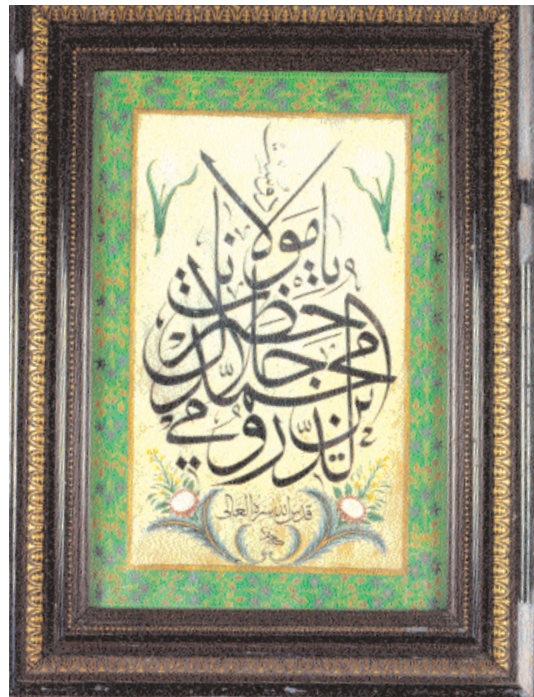 يا حضرت مولانا
محمد جلال الدين رومي
قدس الله سره العالي